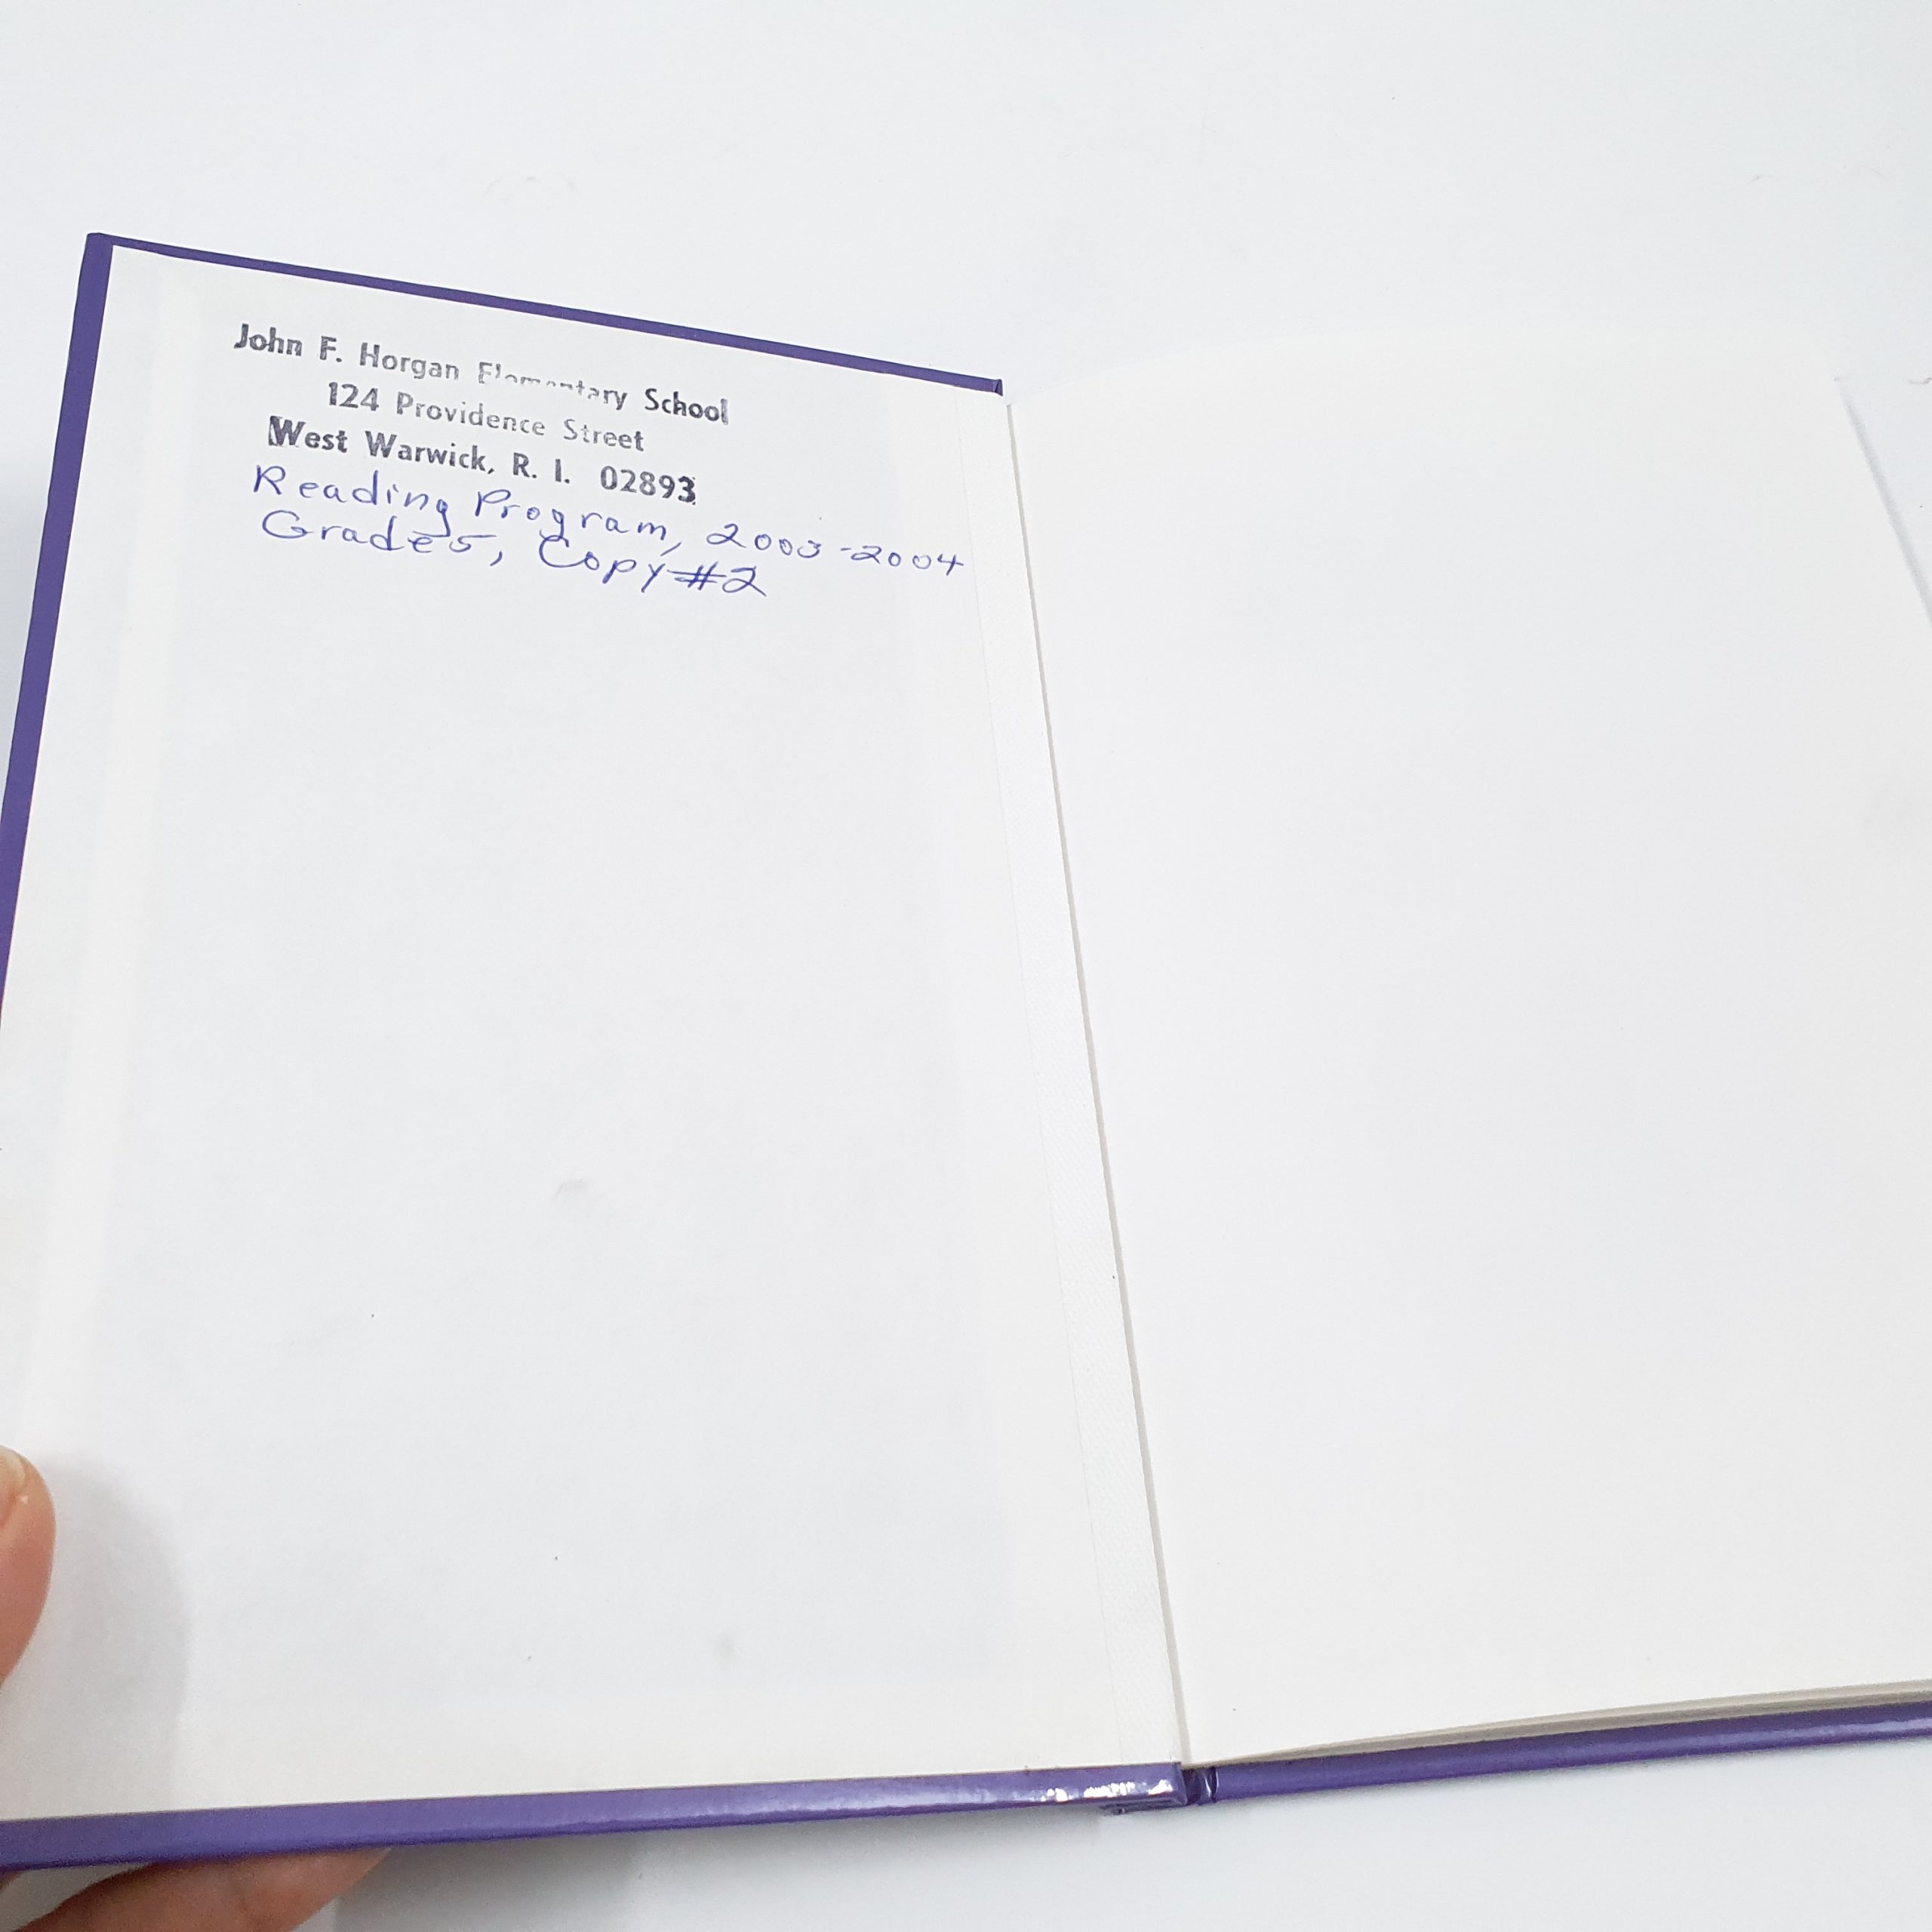 John F. Horgan Elementary School
124 Providence Street
West Warwick, R. I. 02893
Reading Program, 2003-2004
Grade 5, Copy #2